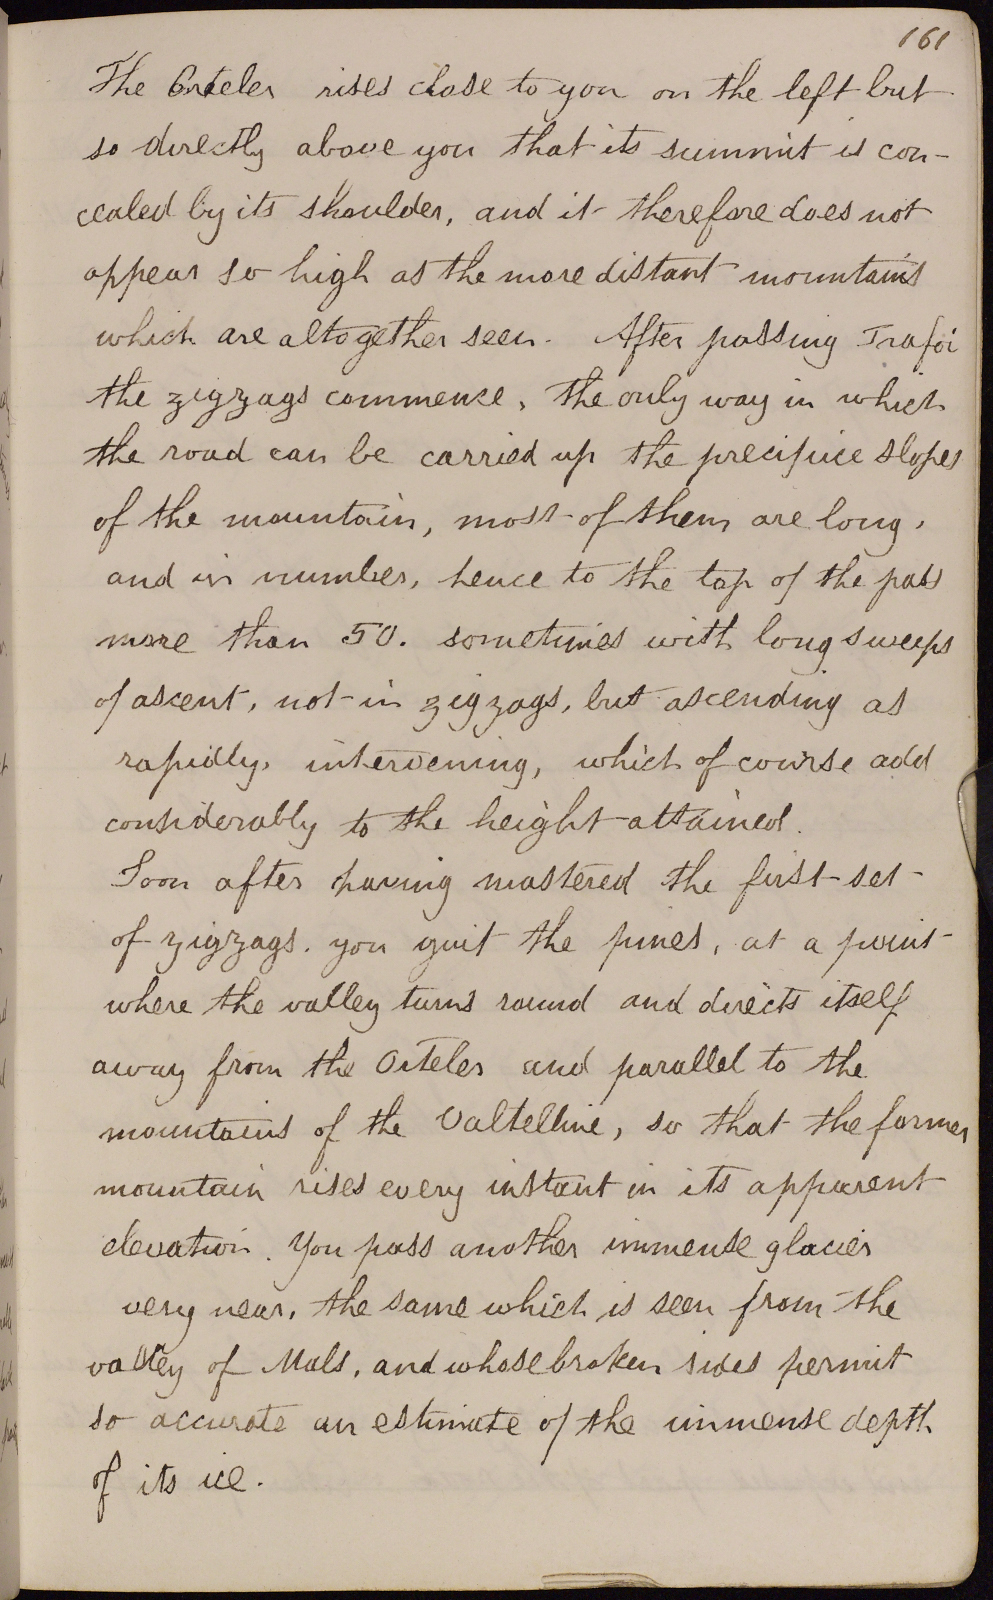 161
The Orteler rises close to you on the left but
so directly above you that its summit is con-
cealed by its shoulder, and it therefore does not
appear so high as the more distant mountains
which are altogether seen. After passing Trafoi
the zigzags commence, the only way in which
the road can be carried up the precipice slopes
of the mountain, most of them are long,
and in number, hence to the top of the pass
more than 50. sometimes with long sweeps
of ascent, not in zigzags, but ascending as
rapidly, intervening, which of course add
considerably to the height attained.
Soon after having mastered the first set
of zigzags. you quit the pines, at a point
where the valley turns round and directs itself
away from the Orteler and parallel to the
mountains of the Valtelline, so that the former
mountain rises every instant in its apparent
elevation. You pass another immense glacier
very near, the same which is seen from the
valley of Mals, and whose broken sides permit
so accurate an estimate of the immense depth
of its ice.